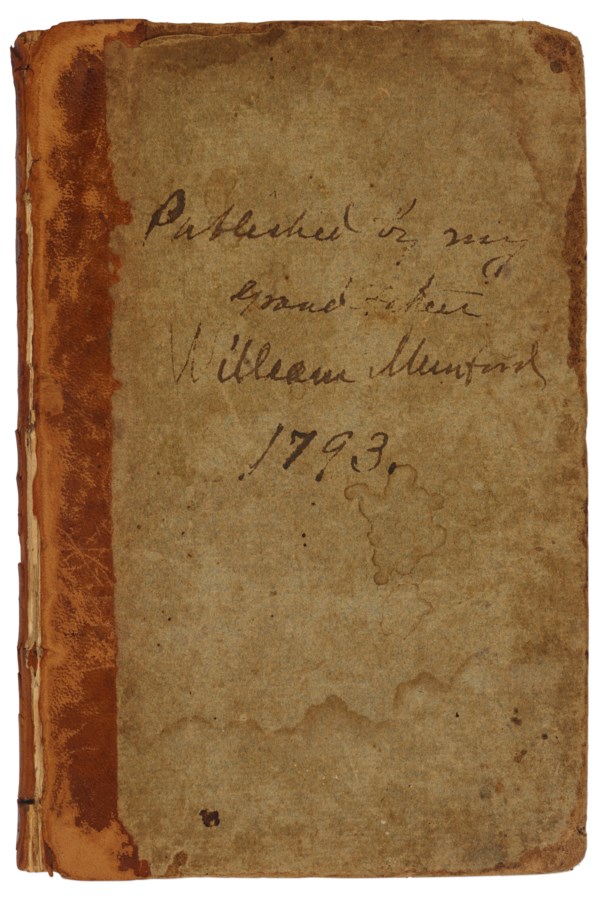 Published by my
grand father
William Munford
1793.